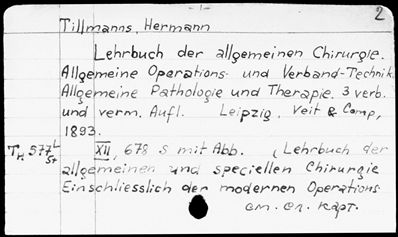 - 1 -
2
Tillmanns, Hermann
Lehrbuch der allgemeinen Chirurgie.
Allgemeine Operations- und Verband-Technik.
Allgemeine Pathologie und Therapie. 3 verb.
und verm. Aufl. Leipzig, Veit & Comp,
1893.
XII, 678 S mit Abb. (Lehrbuch der
allgemeinen und speciellen Chirurgie
Einschliesslich der modernen Operations
см. сл. карт.